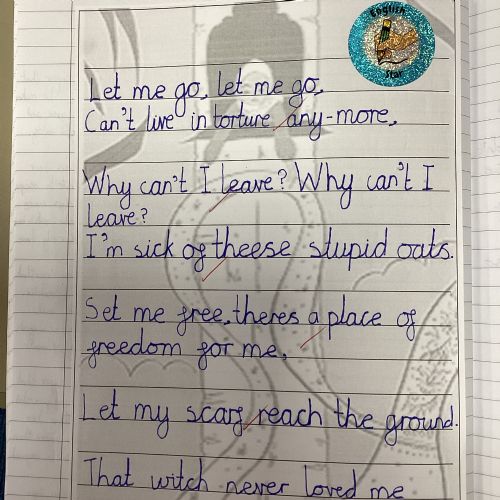 English
Star
Let me go, let me go,
Can't live in torture any-more,
Why can't I leave? Why can't I
leave?
I'm sick of theese stupid oats.
Set me free, theres a place of
freedom for me,
Let my scarf reach the ground.
That witch never loved me